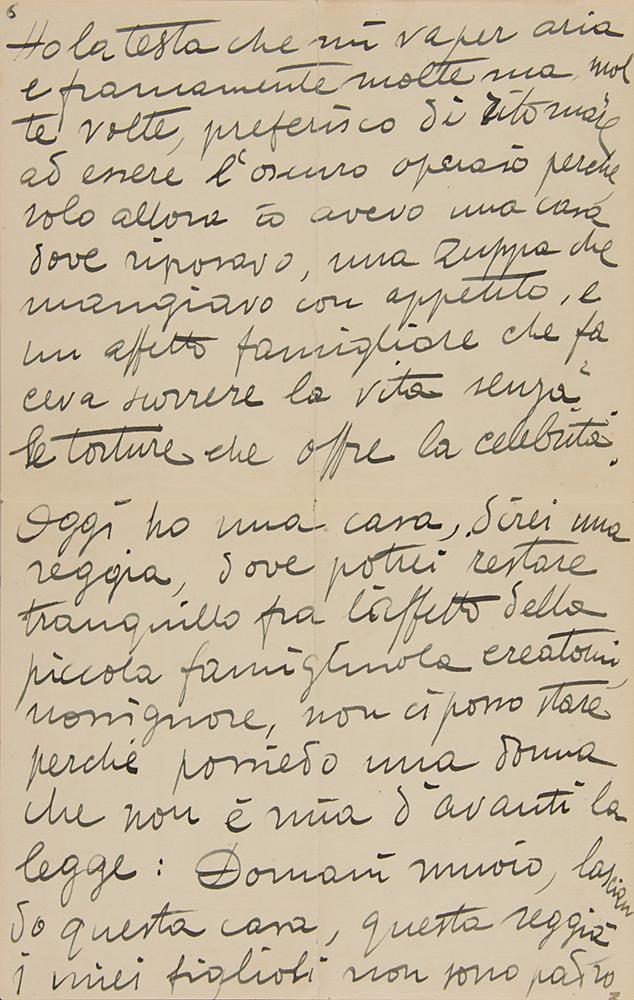 6
Ho la testa che mi va per aria
e francamente molte ma mol
te volte, preferisco di ritornare
ad essere l'oscuro operaio perchè
solo allora io avevo una casa
dove riposavo, una zuppa che
mangiavo con appetito, e
un affetto famigliare che fa
ceva scorrere la vita senza
le torture che offre la celebrità.
Oggi ho una casa, direi una
reggia, dove potrei restare
tranquillo fra l'affetto della
piccola famigliuola creatomi,
nossignore, non ci posso stare
perchè possiedo una donna
che non è mia d'avanti la
legge: Domani muoio, lascian
do questa casa, questa reggia
i miei figlioli non sono padro